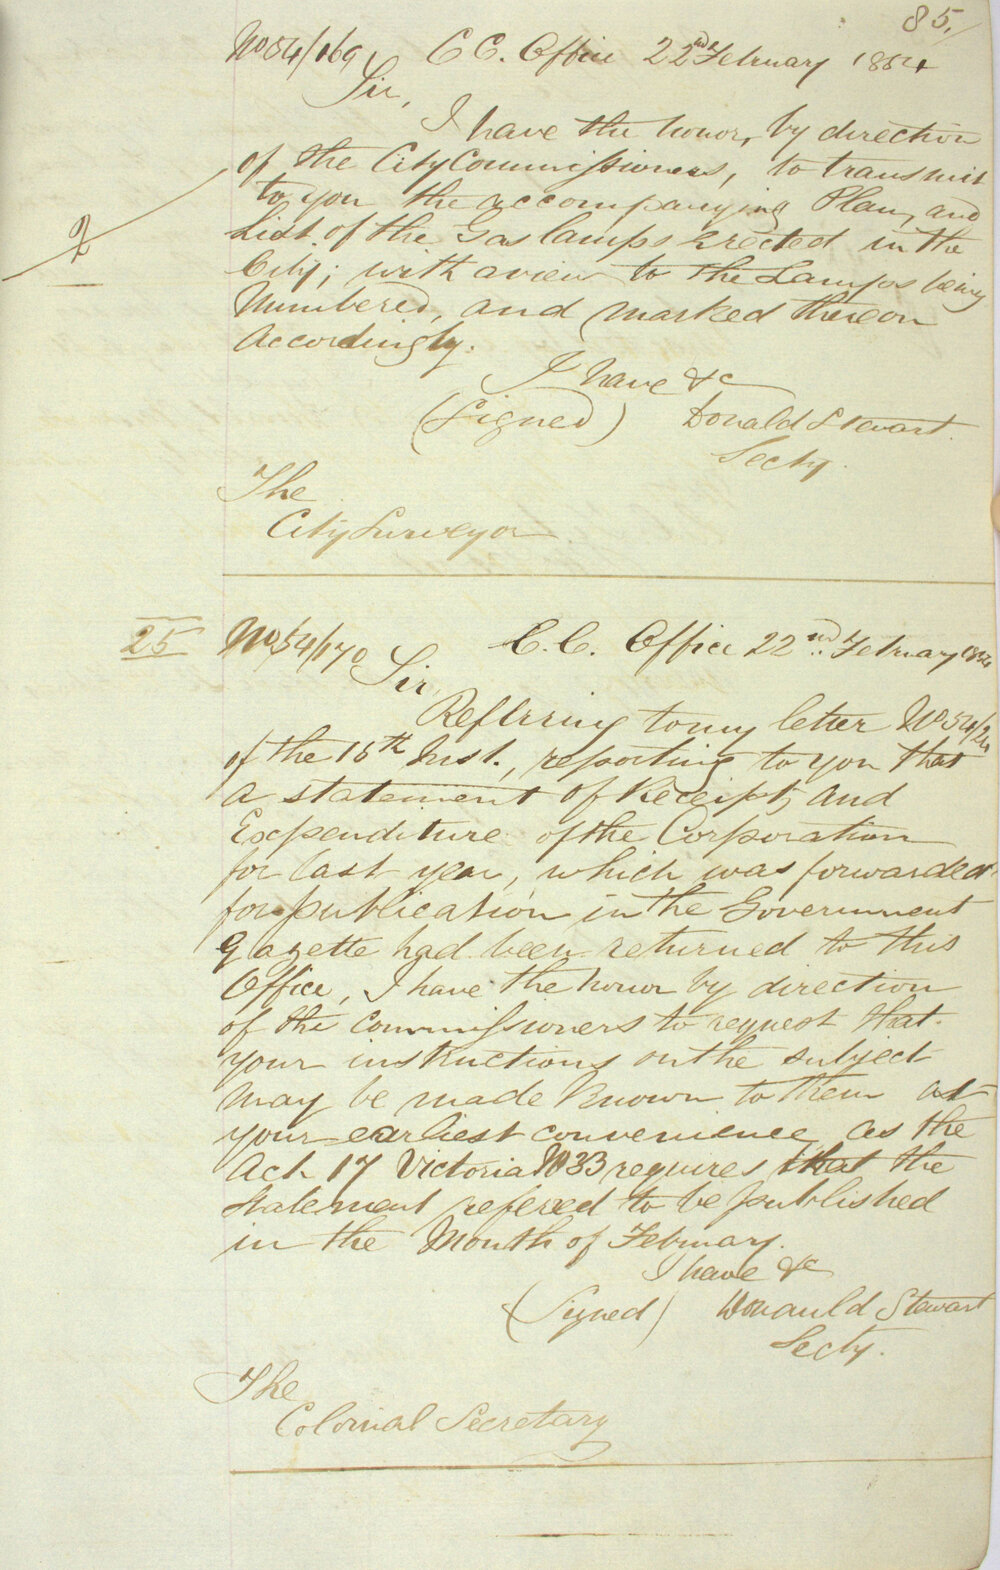 85.
No 54/169 C C. Office 22nd February 1854
Sir,
I have the honor, by direction
of the City Commissioners, to transmit
to you the accompanying Plan, and
List of the Gas lamps Erected in the
City; with a view to the Lamps being
Numbered, and marked thereon
accordingly.
I have &c
(Signed) Donald Stewart
Secty.
The
City Surveyor
25 No 54/170 C. C. Office 22nd February 1854
Sir,
Referring to my letter No 54/
of the 15th Inst., reporting to you that
a statement of Receipt, and
Expenditure of the Corporation
for last year, which was forwarded
for publication in the Government
Gazette had been returned to this
Office, I have the honor by direction
of the Commissioners to request that
your instructions on the subject
may be made Known to them at
your earliest convenience, as the
Act 17 Victoria No 33 requires that the
statement refered to be published
in the Month of February.
I have &c
(Signed) Donauld Stewart
Secty.
The
Colonial Secretary